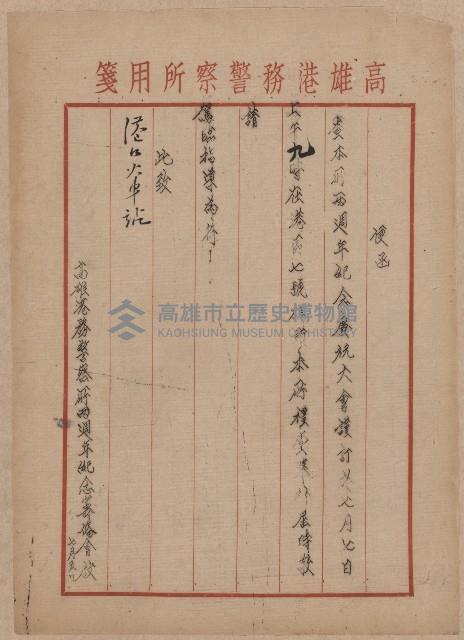 高雄港務警察所用箋
便函
查本所兩週年紀念慶祝大會謹訂於七月七日
上午九時在港前七號本所樓屆時敬
請
駕臨指導為荷!
此致
港口火車站
高雄港務警察所兩週年紀念籌備會啟
七月五日
高雄市立歷史博物館
KAOHSIUNG MUSEUM OF HISTORY